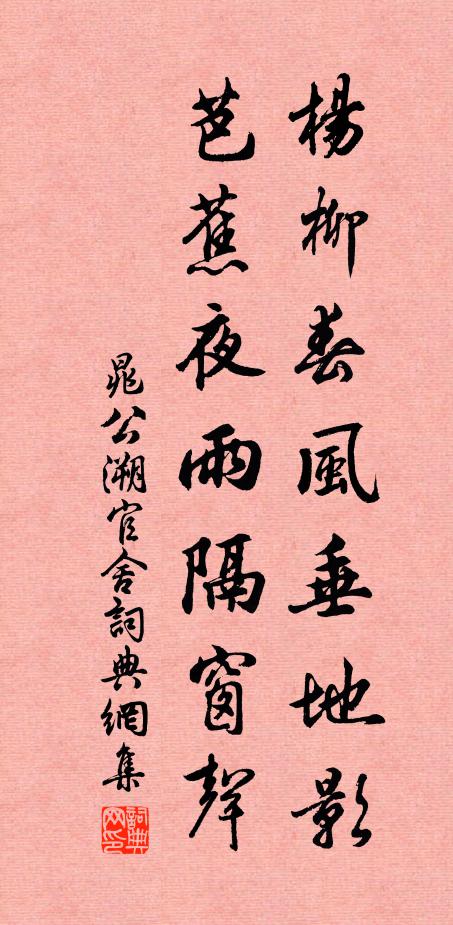 楊柳春風垂地影
芭蕉夜雨隔窗聲
晁公溯官舍詞典網集
詞典网印